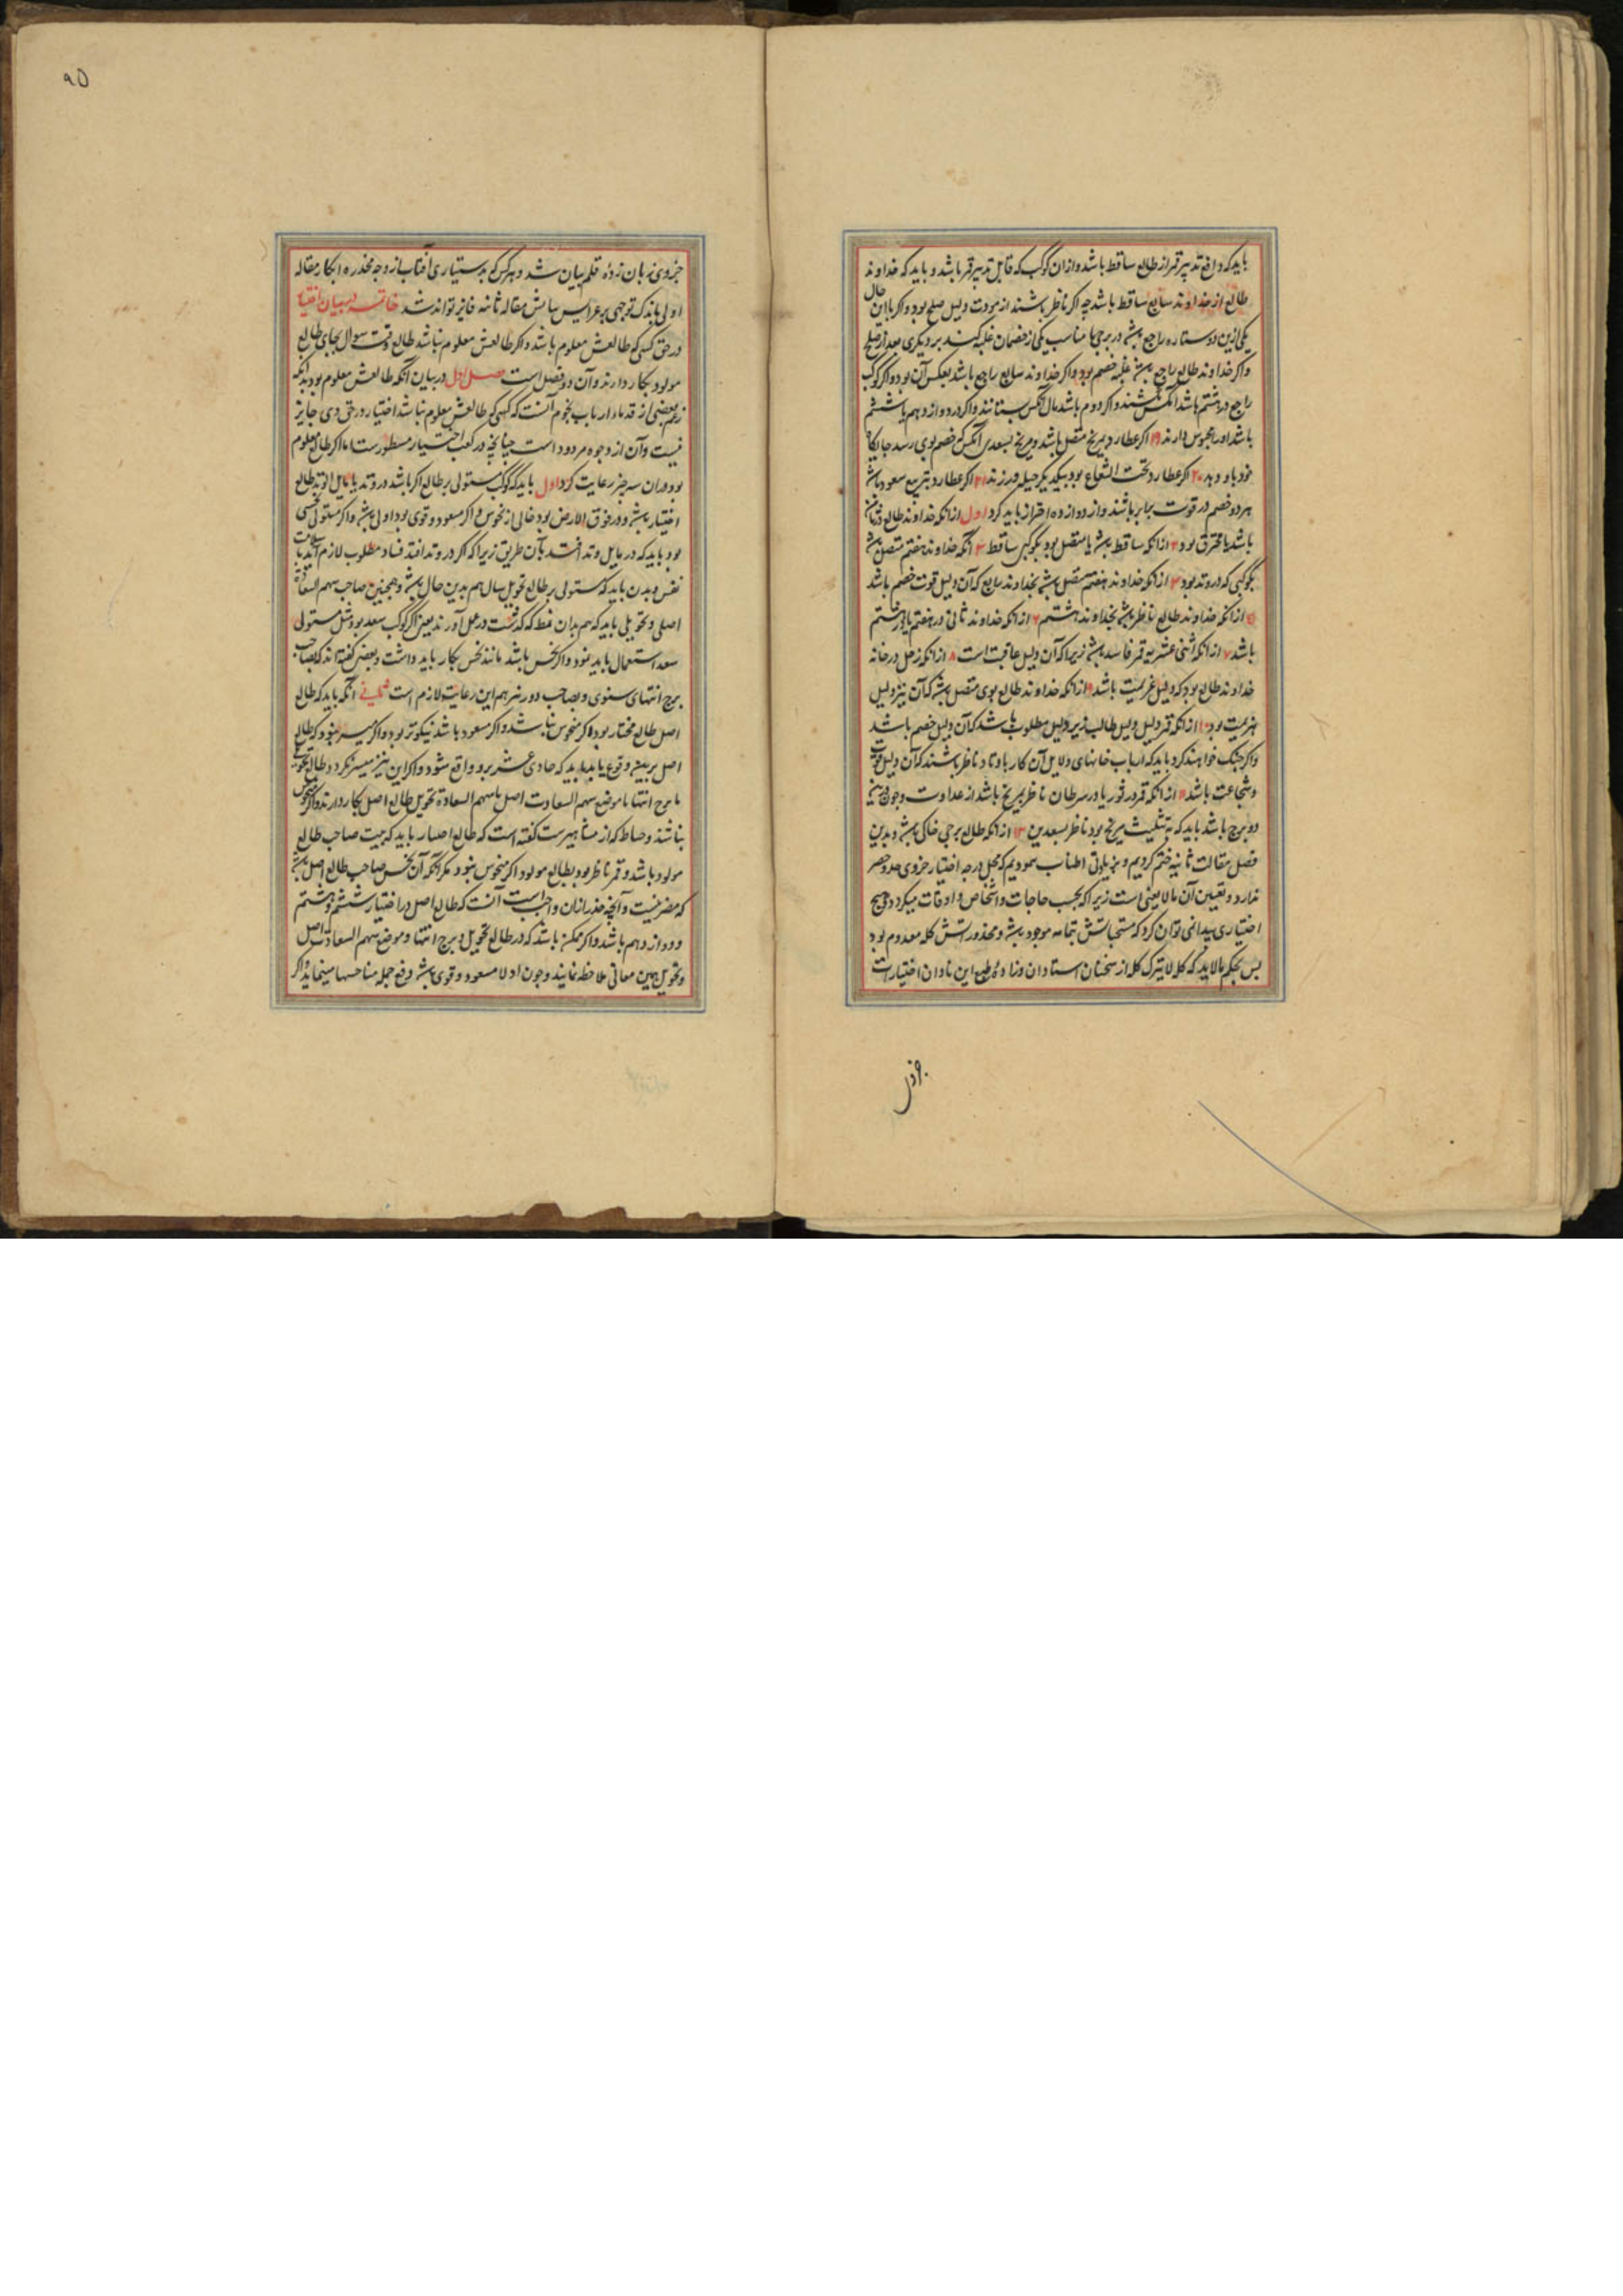 باید که دافع تدبیر قمر از طالع ساقط باشد و از ان کوکب که قابل تدبیر قمر باشد و باید که خداوند
طالع از خداوند سابع ساقط باشد چه اکر ناظر باشند از مودت دلیل صلح بود و اکر با این حال
یکی ازین دو ستاره راجع باشد در برجی مناسب یکی از خصمان غلبه کند بر دیکری بعد از صلح
واکر خداوند طالع راجع باشد غلبه خصم بود واکر خداوند سابع راجع باشد بعکس آن بود واکر کوکب
راجع در هشتم باشد آنکس کشند واکر دوم باشد مال آنکس بستانند واکر در دوازدهم یا ششم
باشد او را محبوس دارند ۱۹ اکر عطارد بمریخ متصل باشد و مریخ بسعدی آنکس که خصم بوی رسد جایکاه
خود باو دهد ۲۰ اکر عطارد تحت الشعاع بود بیکدیکر حیله ورزند ۲۱ اکر عطارد بتربیع سعود باشد
هر دو خصم در قوت برابر باشند و از دوازده احتراز باید کرد اول از انکه خداوند طالع در ثامن
باشد یا محترق بود ۲ از انکه ساقط باشد یا متصل بود بکوکبی ساقط ۳ آنکه خداوند هفتم متصل باشد
بکوکبی که در وتد بود ۴ از انکه خداوند هفتم متصل باشد بخداوند رابع که آن دلیل قوت خصم باشد
۵ از انکه خداوند طالع ناظر باشد بخداوند هشتم ۶ از انکه خداوند ثانی در هفتم یا در هشتم
باشد ۷ از انکه اثنی عشریه قمر فاسد باشد زیرا که آن دلیل عاقبت است ۸ از انکه زحل در خانه
خداوند طالع بود که دلیل هزیمت باشد ۹ از انکه خداوند طالع بوی متصل باشد که آن نیز دلیل
هزیمت بود ۱۰ از انکه قمر دلیل و دلیل طالب زیر دلیل مطلوب باشد که آن دلیل خصم باشد
واکر جنک خواهند کرد باید که ارباب خانهای دلایل آن کار باوتاد ناظر باشند که آن دلیل قوت
و شجاعت باشد ۱۱ از انکه قمر در ثور یا در سرطان ناظر بمریخ باشد از عداوت و چون درین
دو برج باشد باید که به تثلیث مریخ بود ناظر بسعدین ۱۲ از انکه طالع برجی خاکی باشد و بدین
فصل مقالت ثانیه ختم کردیم و بزیادتی اطناب ننمودیم که محل درجه اختیار جزوی حد و حصر
ندارد و تعیین آن مالا یعنی است زیرا که بحسب حاجات و اشخاص و اوقات میکردد و هیچ
اختیاری پیدا نمی توان کرد که مستحباتش بتمامه موجود باشد و محذوراتش کله معدوم بود
پس بحکم مالا یدرک کله لا یترک کله از سخنان استادان و زادۀ طبع این نادان اختیارات
جزوی زبان زدۀ قلم بیان شد و هر کس که بدستیاری آفتاب از وجه مخدره ابکار مقاله
اولی باندک توجهی بر عرایس سامش مقاله ثانیه فایز تواند شد خاتمه در بیان اختیار
در حق کسی که طالعش معلوم باشد واکر طالعش معلوم نباشد طالع وقت سوال بجای طالع
مولود بکار دارند و آن دو فصل است فصل اول در بیان آنکه طالعش معلوم بود بدانکه
زعم بعضی از قدماء ارباب نجوم آنست که کسی که طالعش معلوم نباشد اختیار در حق وی جایز
نیست و آن از وجوه مردود است چنانچه در کتب اختیار مسطور ست اما اکر طالع معلوم
بود در ان سه چیز رعایت کرد اول باید که کوکب مستولی بر طالع اکر باشد در وتد یا مایل الوتد طالع
اختیار باشد و در فوق الارض بود خالی از نحوس و اکر مسعود و قوی بود اولی باشد و اکر مستولی نحسی
بود باید که در مایل وتد افتد بآن طریق زیرا که اکر در وتد افتد فساد مطلوب لازم آید با سلامت
نفس و بدن باید که مستولی بر طالع تحویل سال هم بدین حال باشد و همچنین صاحب سهم السعادة
اصلی و تحویلی باید که هم بدان نمط که کذشت در عمل آورند یعنی اکر کوکب سعد بود مثل مستولی
سعد استعمال باید نمود واکر نحس باشد مانند نحس بکار باید داشت و بعضی کفته اند که بصاحب
برج انتهای سنوی و بصاحب دور نیز هم این رعایت لازم است ثانی آنکه باید که طالع
اصل طالع مختار بود اکر منحوس نباشد و اکر مسعود باشد نیکوتر بود و اکر میسر نبود که طالع
اصل بر بیت وقوع یابد باید که حادی عشر برو واقع شود و اکر این نیز میسر نکردد طالع تحویل
یا برج انتها یا موضع سهم السعادت اصل یا سهم السعادة تحویل طالع اصل بکار دارند و اکر منحوس
نباشند و صاط که از مشاهیر ست کفته است که طالع اختیار باید که بیت صاحب طالع
مولود باشد و قمر ناظر بود بطالع مولود اکر منحوس نبود مکر آنکه آن نحس صاحب طالع اصل باشد
که مضر نیست و آنچه حذر از ان واجب است آنست که طالع اصل در اختیار ششم و هشتم
و دوازدهم باشد و اکر ممکن باشد که در طالع تحویل و برج انتها و موضع سهم السعادت اصل
و تحویل همین معانی ملاحظه نمایند و چون اولا مسعود و قوی باشد دفع جمله مناحسها مینماید و اکر